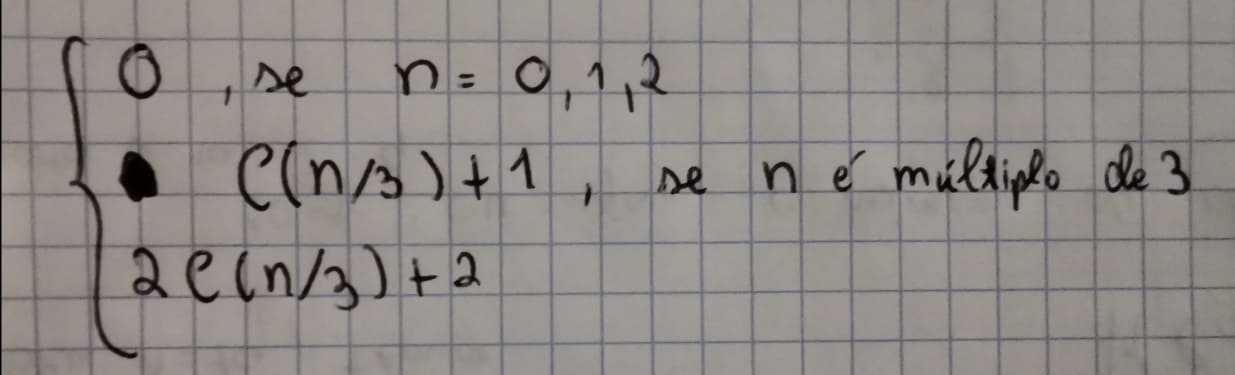 0, se n = 0, 1, 2
C(n/3) + 1, se n é múltiplo de 3
2C(n/3) + 2